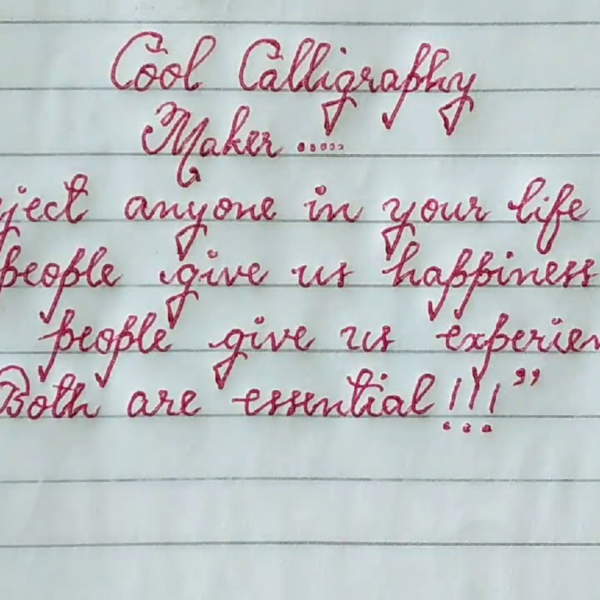 Cool Calligraphy
Maker .....
ject anyone in your life
people give us happiness
people give us experien
Both are essential!!!”